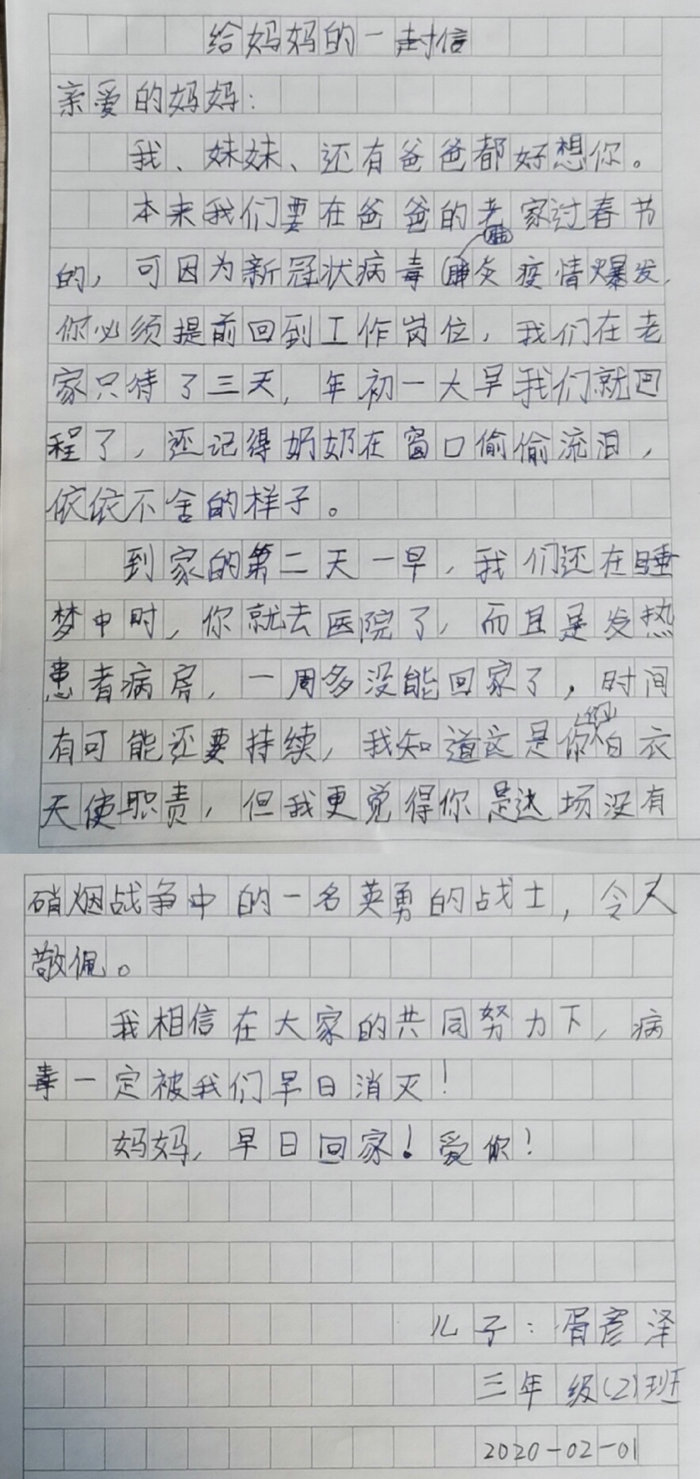 给妈妈的一封信
亲爱的妈妈：
我、妹妹、还有爸爸都好想你。
本来我们要在爸爸的老家过春节
的，可因为新冠状病毒肺炎疫情爆发，
你必须提前回到工作岗位，我们在老
家只待了三天，年初一大早我们就回
程了，还记得奶奶在窗口偷偷流泪，
依依不舍的样子。
到家的第二天一早，我们还在睡
梦中时，你就去医院了，而且是发热
患者病房，一周多没能回家了，时间
有可能还要持续，我知道这是你们白衣
天使职责，但我更觉得你是这场没有
硝烟战争中的一名英勇的战士，令人
敬佩。
我相信在大家的共同努力下，病
毒一定被我们早日消灭！
妈妈，早日回家！爱你！
儿子：胥彦泽
三年级(2)班
2020-02-01